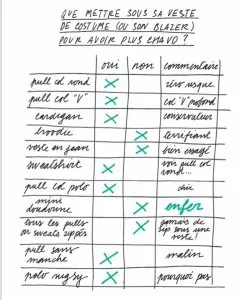 QUE METTRE SOUS SA VESTE
DE COSTUME (OU SON BLAZER)
POUR AVOIR PLUS CHAUD ?
oui non commentaire
pull col rond X zéro risque
pull col "V" X col "V" profond
cardigan X conservateur
hoodie X terrifiant
veste en jean X bien essayé
sweatshirt X voir pull col
rond...
pull col polo X chic
mini
doudoune X enfer
tous les pulls
ou sweats zippés X jamais de
zip sous une
veste !
pull sans
manche X malin
polo rugby X pourquoi pas